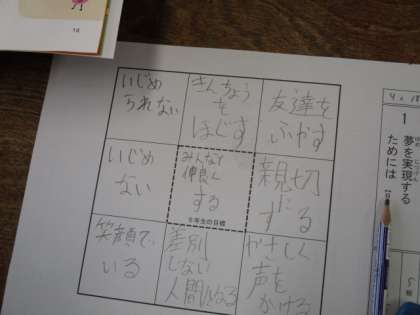 いじめ
られない
きんちょう
を
ほぐす
友達を
ふやす
いじめ
ない
みんなと
仲良く
する
6年生の目標
親切
に
する
笑顔で
いる
差別
しない
人間になる
やさしく
声を
かける
1
夢を実現する
ためには